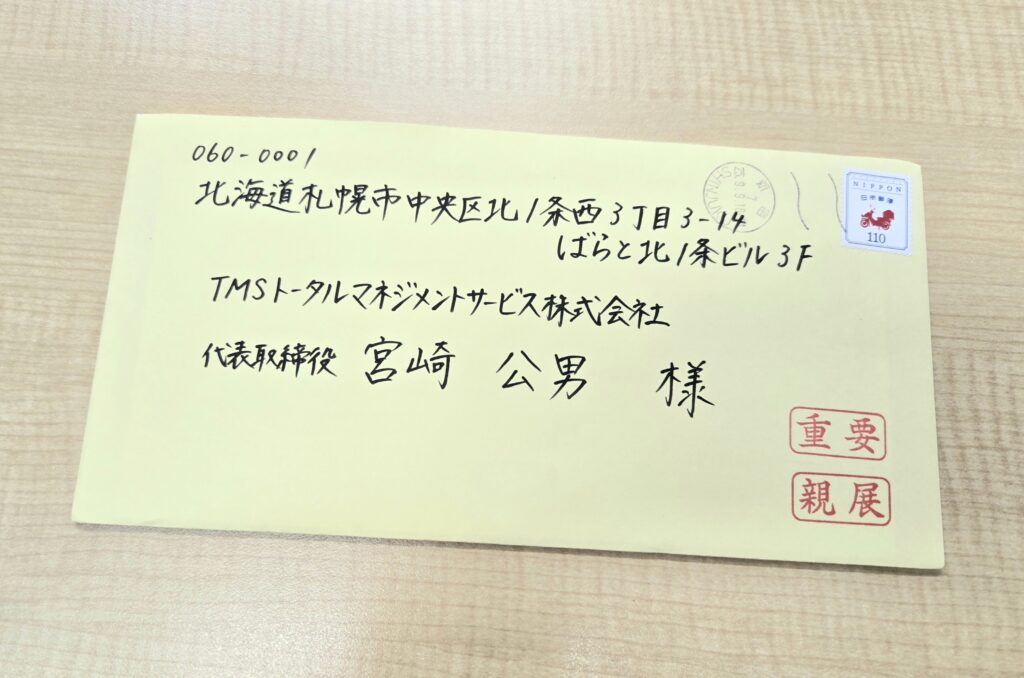 060-0001
北海道札幌市中央区北1条西3丁目3-14
ばらと北1条ビル3F
TMSトータルマネジメントサービス株式会社
代表取締役 宮崎 公男 様
NIPPON
日本郵便
110
重要
親展